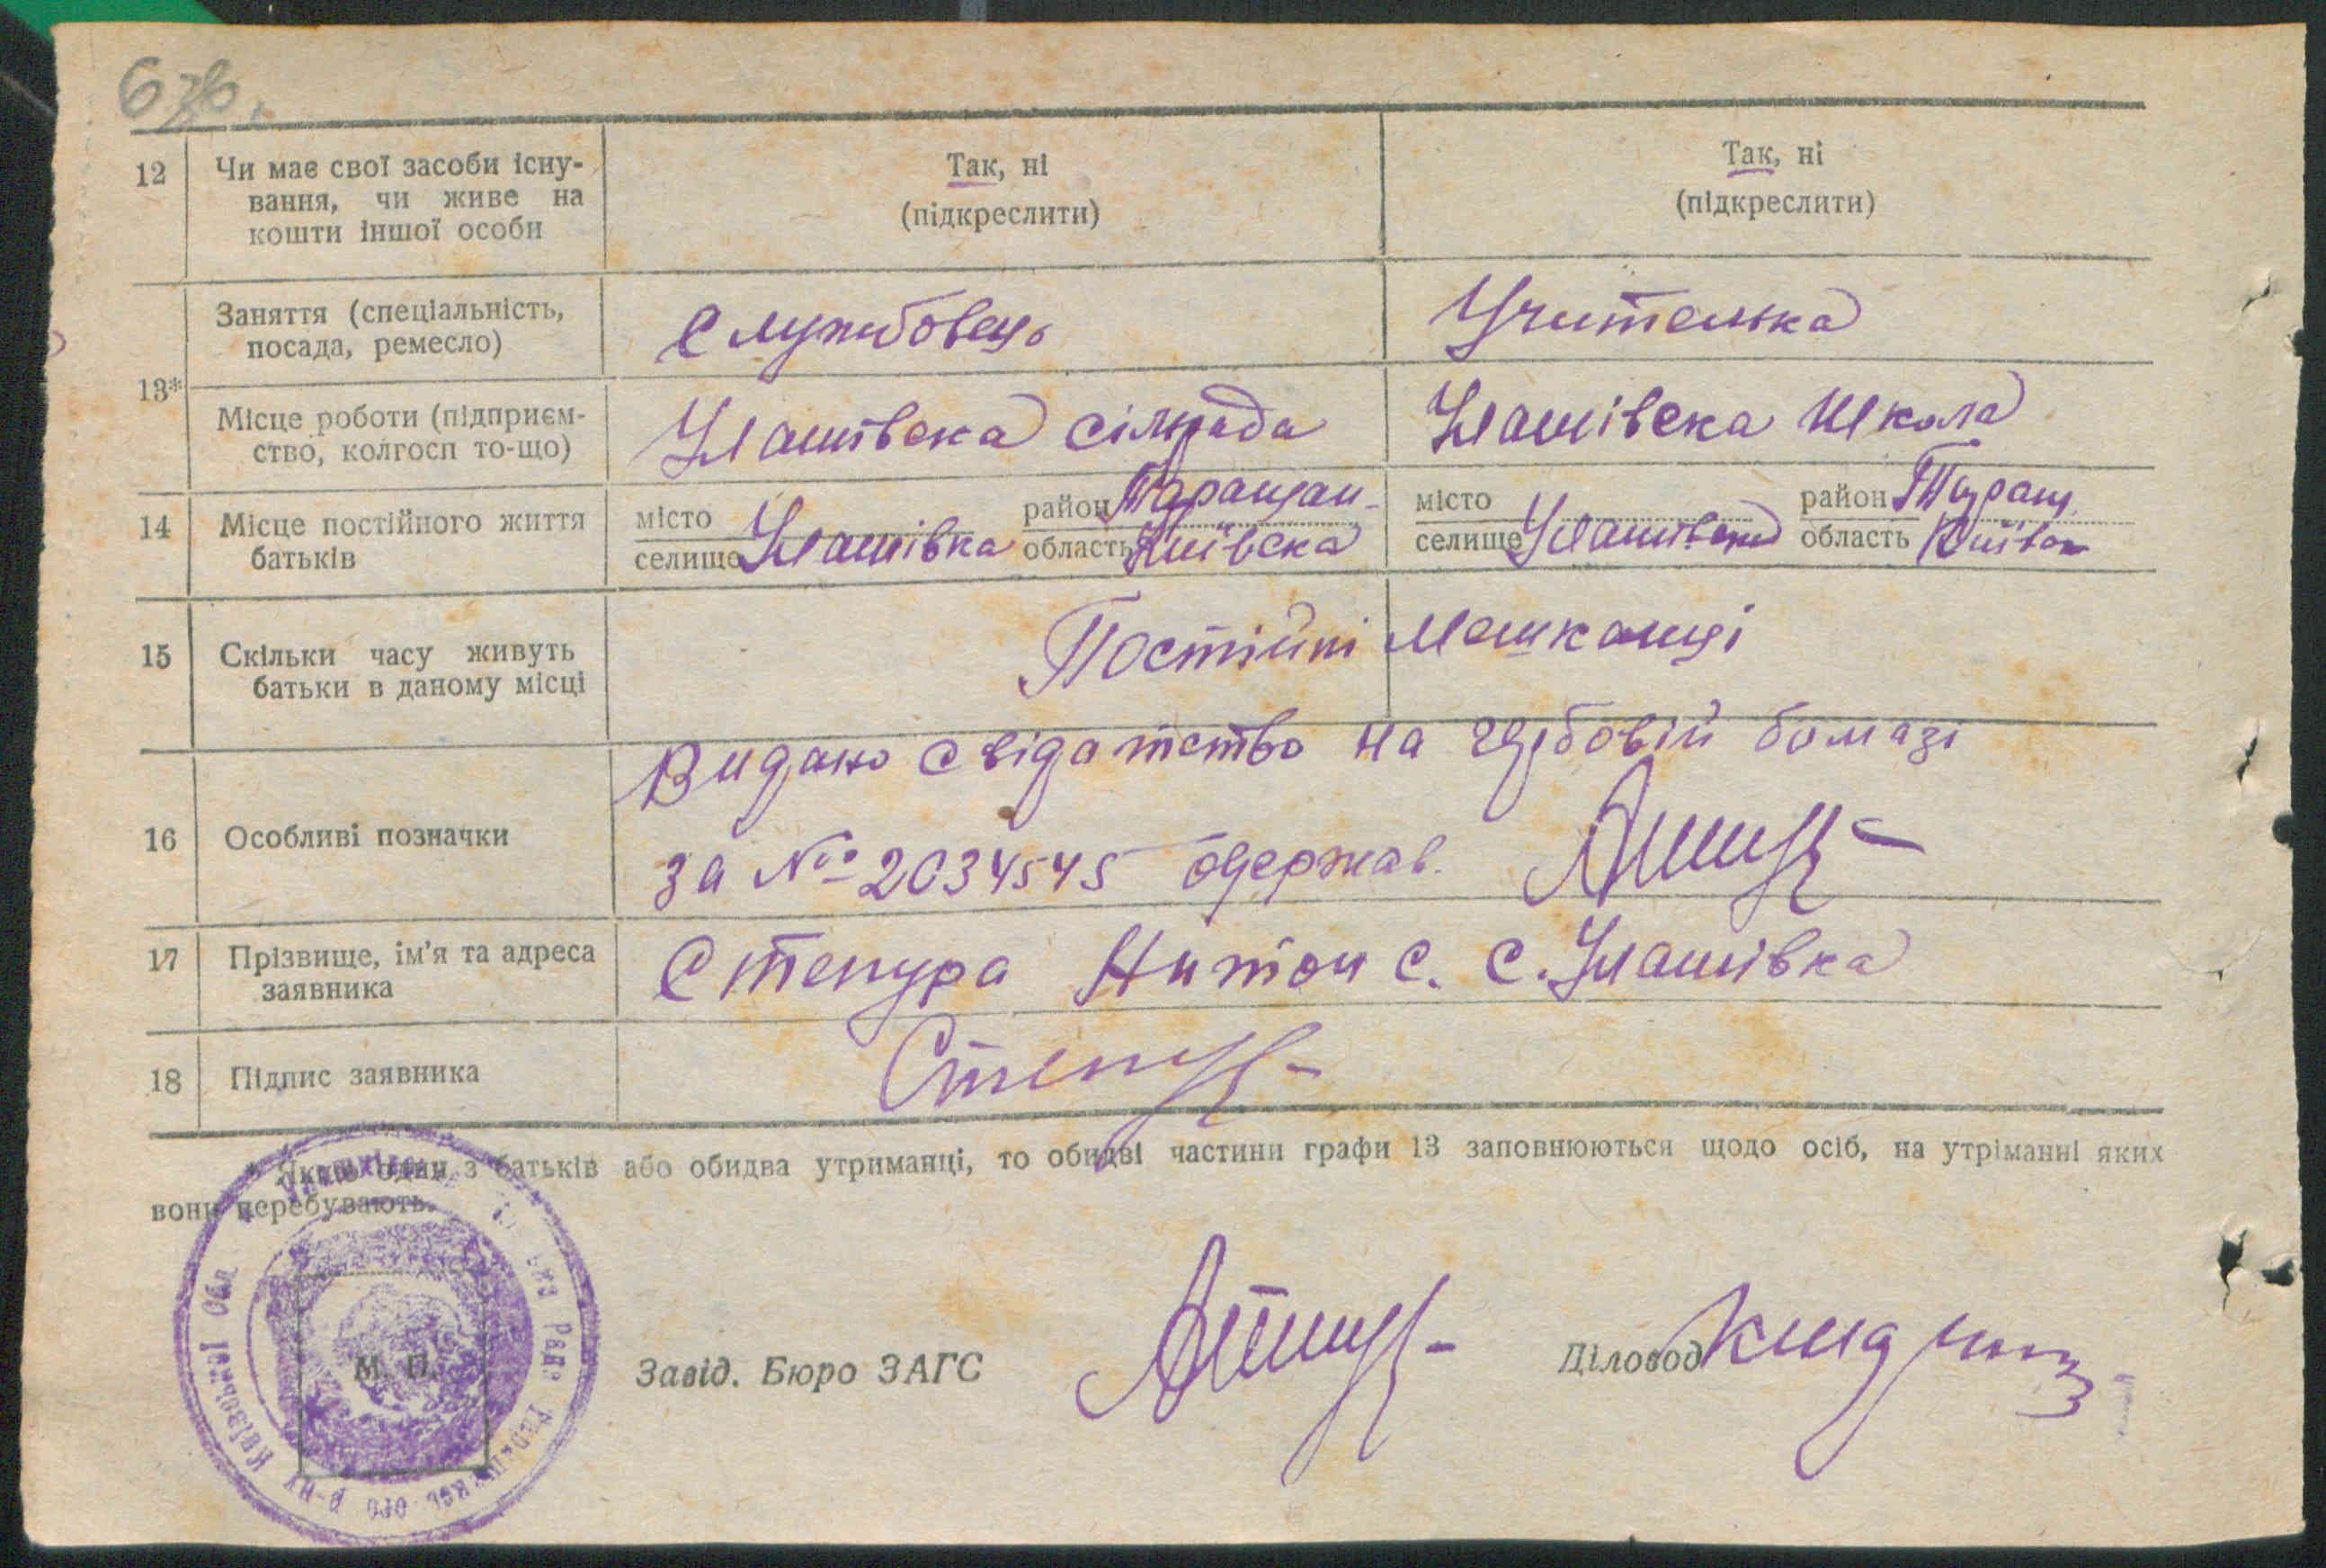 67б.
12 Чи має свої засоби існу- Так, ні Так, ні
вання, чи живе на (підкреслити) (підкреслити)
кошти іншої особи
Заняття (спеціальність, Службовець Учителька
посада, ремесло)
13*
Місце роботи (підприєм- Улашівска сілрада Улашівска школа
ство, колгосп то-що)
14 Місце постійного життя місто район Таращан- місто район Таращ.
батьків селище Улашівка область Київска селище Улашівка область Київск
15 Скільки часу живуть Постійні мешканці
батьки в даному місці
Видано свідатство на гербовій бомазі
16 Особливі позначки
за № 2034545 одержав.
17 Прізвище, ім'я та адреса Степура Антон С. с. Улашівка
заявника
18 Підпис заявника Степур
* Якщо один з батьків або обидва утриманці, то обидві частини графи 13 заповнюються щодо осіб, на утріманні яких
вони перебувають.
М. П.
Завід. Бюро ЗАГС Діловод